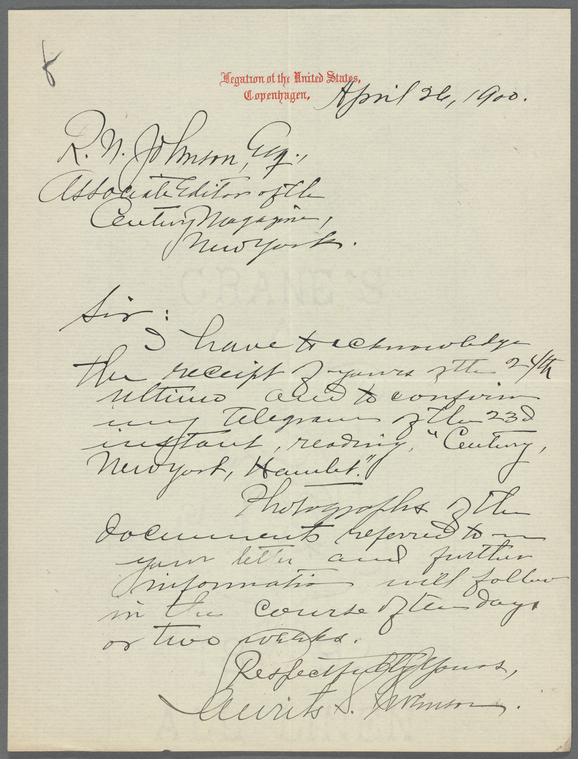 8
Legation of the United States,
Copenhagen,
April 26, 1900.
R. N. Johnson, Esq.,
Associate Editor of the
Century Magazine,
New York.
Sir:
I have to acknowledge
the receipt of yours of the 24th
ultimo and to confirm
my telegram of the 23d
instant, reading, "Century,
New York, Hamlet."
Photographs of the
documents referred to in
your letter and further
information will follow
in the course of ten days
or two weeks.
Respectfully Yours,
Laurits S. Swenson.
CRANE'S
ALL LINEN